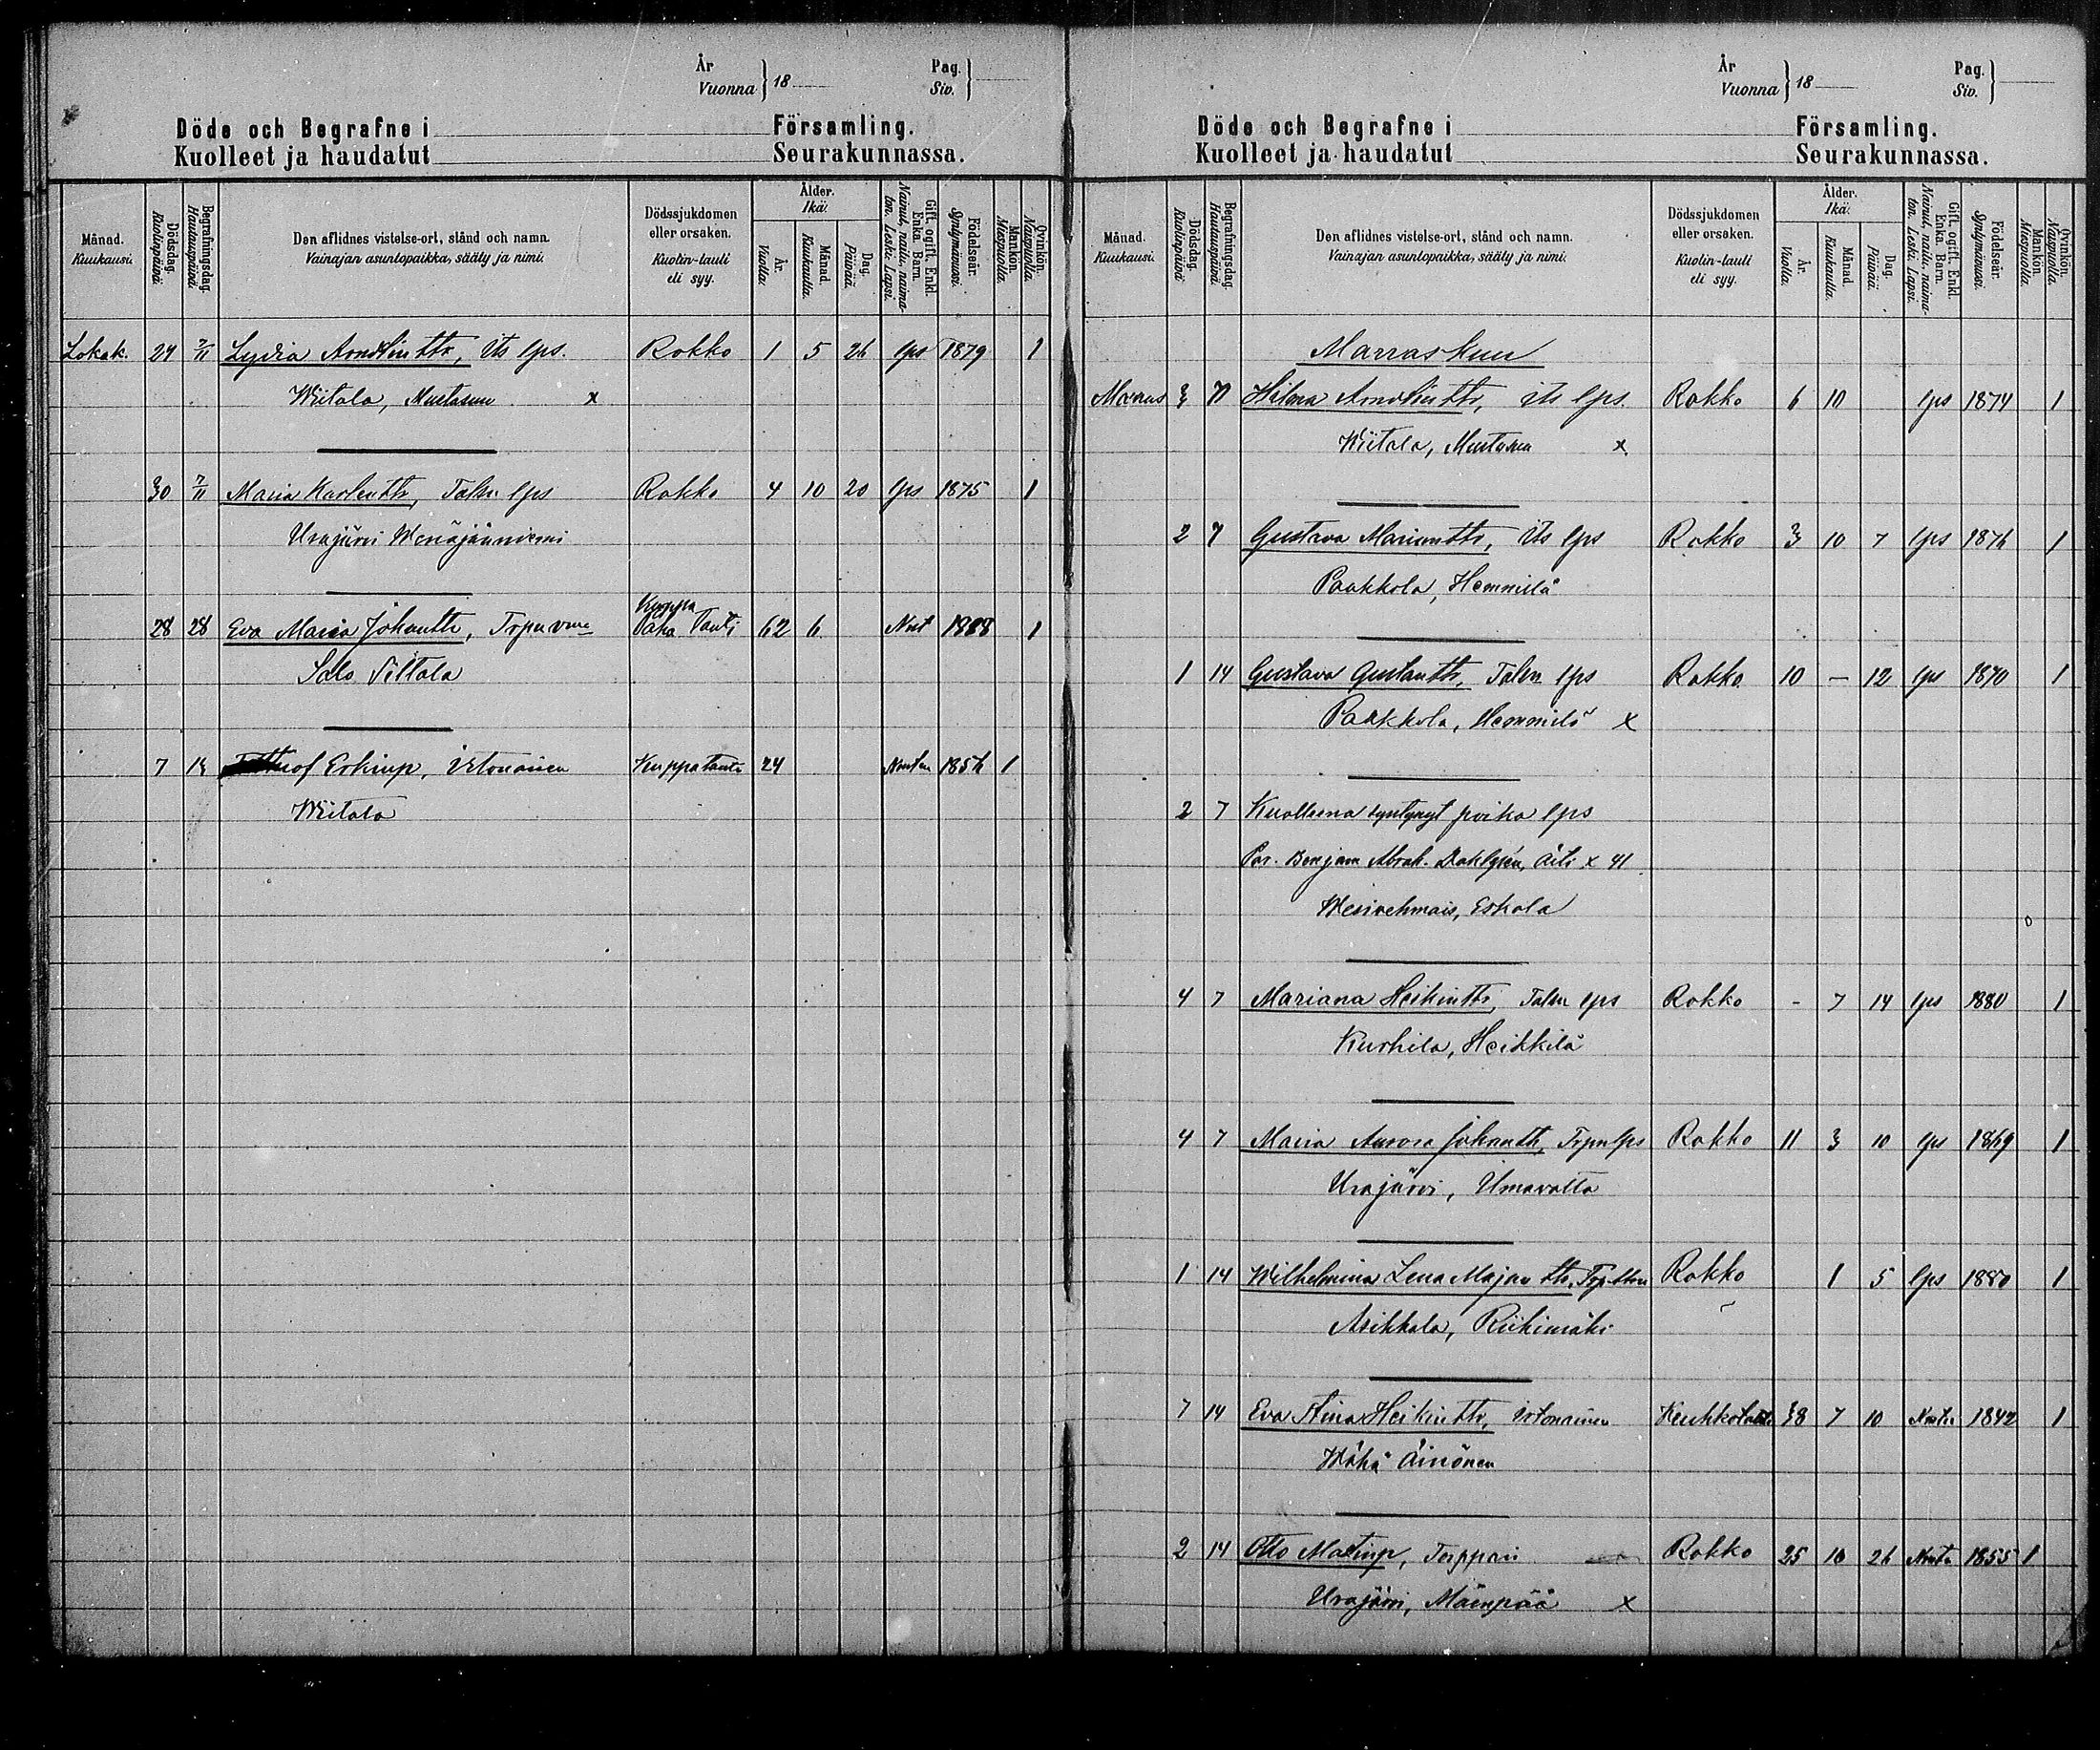 År Vuonna } 18 Pag. Siv. }
Döde och Begrafne i Församling.
Kuolleet ja haudatut Seurakunnassa.
Månad. Kuukausi. Dödsdag. Kuolinpäivä. Begrafningsdag. Hautauspäivä. Den aflidnes vistelse-ort, stånd och namn. Vainajan asuntopaikka, sääty ja nimi. Dödssjukdomen eller orsaken. Kuolin-tauti eli syy. Ålder. Ikä. År. Vuotta. Månad. Kuukautta. Dag. Päivää. Gift, ogift. Enkl. Enka. Barn. Nainut, naitu, naimaton. Leski. Lapsi. Födelseår. Syntymävuosi. Mankön. Miespuolia. Qvinkön. Naispuolia.
Lokak. 24 7/11 Lydia Arndlintr, Its lps. Rokko 1 5 26 lps 1879 1
Wiitala, Mustasuu x
30 7/11 Maria Karlentr, Talsn lps Rokko 4 10 20 lps 1875 1
Urajärvi
28 28 Eva Maria Johantr, Kuppa Paha Tauti 62 6 Nut 1888 1
Salo Siltala
7 Erkinp, Itsonainen Kuppatauti 24 1856 1
Wiitala
År Vuonna } 18 Pag. Siv. }
Döde och Begrafne i Församling.
Kuolleet ja haudatut Seurakunnassa.
Månad. Kuukausi. Dödsdag. Kuolinpäivä. Begrafningsdag. Hautauspäivä. Den aflidnes vistelse-ort, stånd och namn. Vainajan asuntopaikka, sääty ja nimi. Dödssjukdomen eller orsaken. Kuolin-tauti eli syy. Ålder. Ikä. År. Vuotta. Månad. Kuukautta. Dag. Päivää. Gift, ogift. Enkl. Enka. Barn. Nainut, naitu, naimaton. Leski. Lapsi. Födelseår. Syntymävuosi. Mankön. Miespuolia. Qvinkön. Naispuolia.
Marraskuu
Marras 3 7 Hilma Arndlintr, its lps. Rokko 6 10 lps 1874 1
Wiitala, Mustasuu x
2 7 Gustava Mariantr, its lps Rokko 3 10 7 lps 1876 1
Paakkola, Hemmilä
1 14 Gustava Gustantr, Talsn lps Rokko 10 — 12 lps 1870 1
Paakkola, Hemmilä x
2 7 Kuolleena syntynyt poika lps
Par. Benjam Abrah. Dahlgrén, Äiti x 41
Wesivehmais, Eskola
4 7 Mariana Heikintr, Talsn lps Rokko - 7 14 lps 1880 1
Kurhila, Heikkilä
4 7 Maria Aurora Johantr, Trpn lps Rokko 11 3 10 lps 1869 1
Urajärvi, Umavalta
1 14 Wilhelmina Lena Majantr, Rokko 1 5 lps 1880 1
Asikkala, Riihimäki
7 14 Eva Stina Heikintr, Itsonainen Keuhkotauti 38 7 10 1842 1
Wähä Äiniönen
2 14 Otto Matinp, Torppari Rokko 25 10 26 1855 1
Urajärvi, Mäenpää x